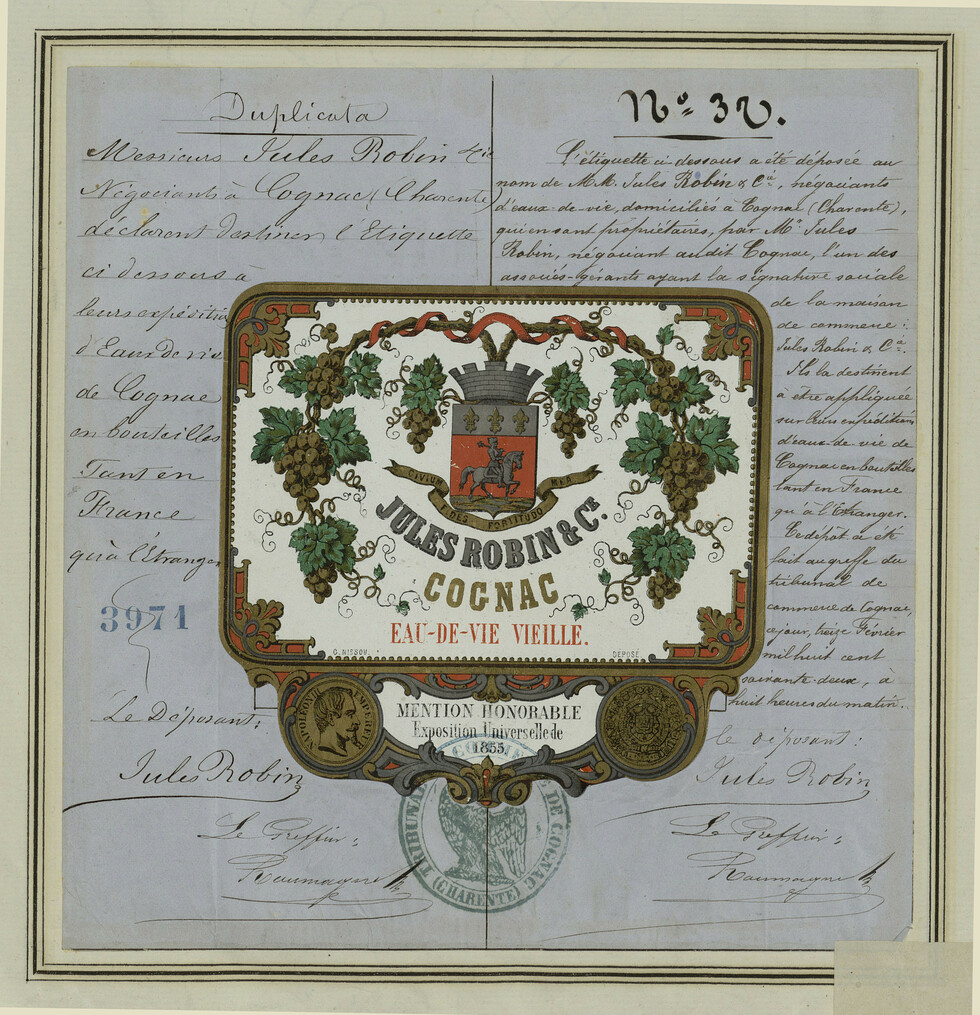 Duplicata
Messieurs Jules Robin & Cie
Négociants à Cognac (Charente)
déclarent destiner l'Etiquette
ci dessous à
leurs expéditions
d'Eaux de vie
de Cognac
en bouteilles
Tant en
France
qu'à l'Etranger
3971
Le Déposant:
Jules Robin
Le Greffier:
Roumagne
No 32.
L'étiquette ci dessous a été déposée au
nom de M.M. Jules Robin & Cie, négociants
d'eaux-de-vie, domiciliés à Cognac (Charente),
qui en sont propriétaires, par Mr Jules –
Robin, négociant audit Cognac, l'un des
associés-gérants ayant la signature sociale
de la maison
de commerce:
Jules Robin & Cie.
Ils la destinent
à être appliquée
sur leurs expéditions
d'eaux-de-vie de
Cognac en bouteilles
tant en France
qu'à l'Etranger.
Ce dépôt a été
fait au greffe du
tribunal de
commerce de Cognac,
ce jour, treize Février
mil huit cent
soixante-deux, à
huit heures du matin.
le déposant:
Jules Robin
Le Greffier:
Roumagne
CIVIUM MEA
FIDES FORTITUDO
JULES ROBIN & CIE.
COGNAC
EAU-DE-VIE VIEILLE.
G. NISSOU.
DÉPOSÉ
NAPOLEON III EMPEREUR
MENTION HONORABLE
Exposition Universelle de
1855
TRIBUNAL DE COGNAC
(CHARENTE)